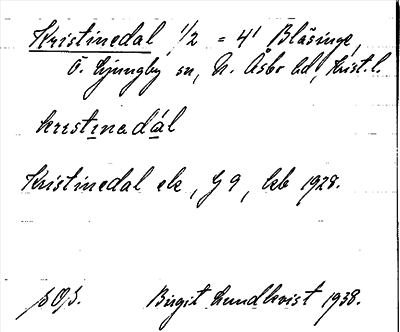 Kristinedal 1/2 = 4¹ Blåsinge,
Ö. Ljungby sn, N. Åsbo hd, Krist. l.
kristinedál
Kristinedal ek, G 9, kb 1928.
Birgit Lundkvist 1938.